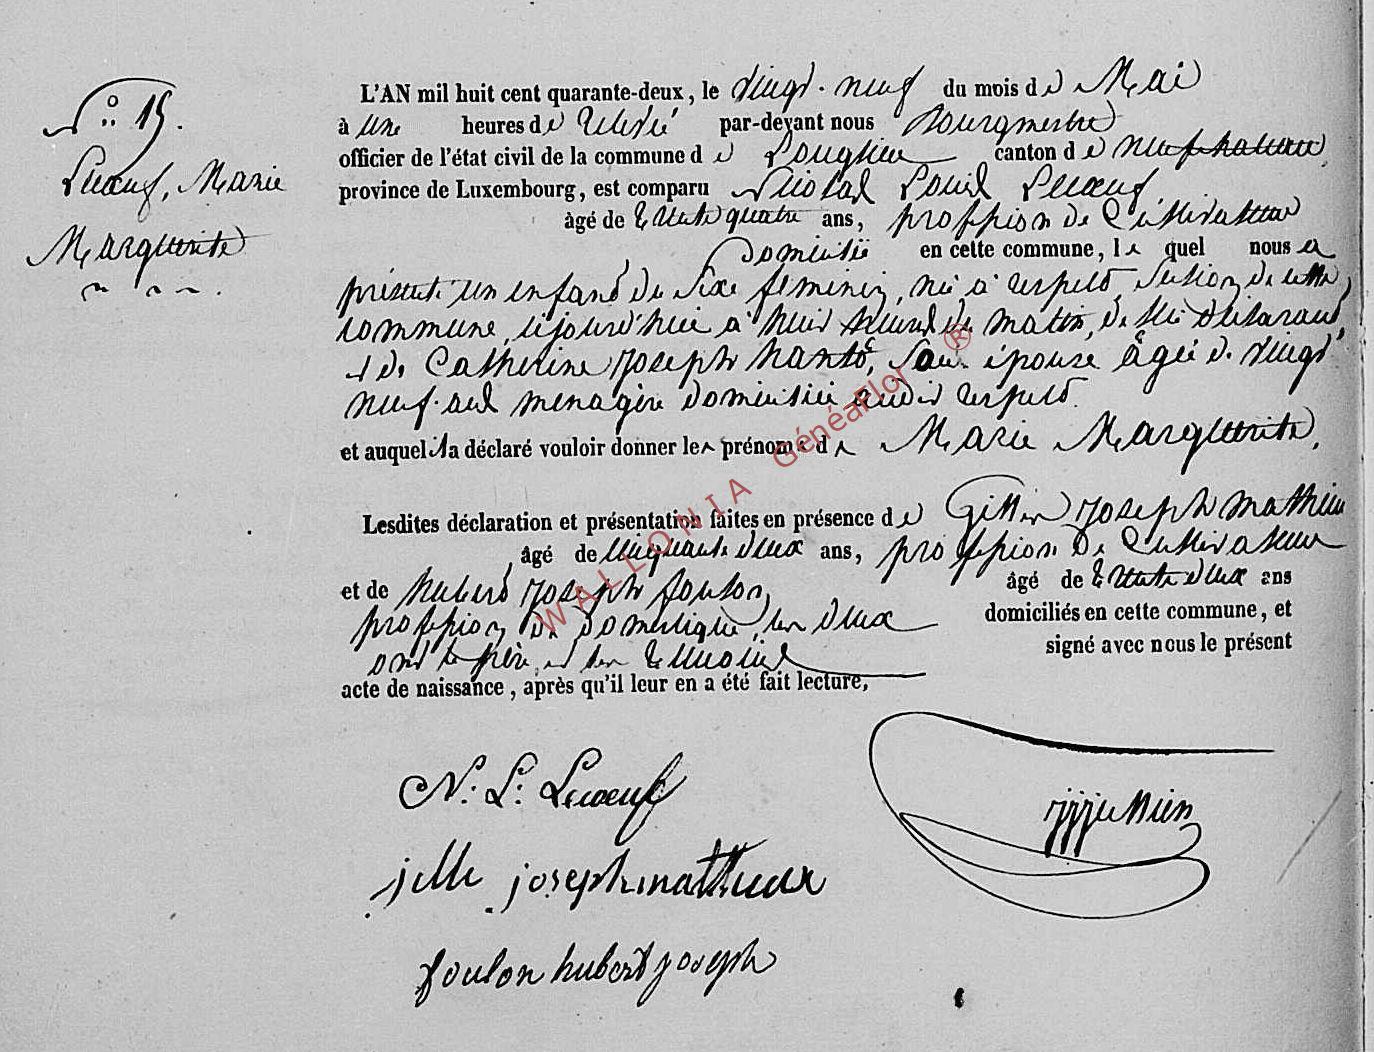 N° 15.
Lecœuf, Marie
Marguerite
L'AN mil huit cent quarante-deux, le vingt-neuf du mois de Mai
à une heures de relevée par-devant nous Bourgmestre
officier de l'état civil de la commune de Longlier canton de neufchateau
province de Luxembourg, est comparu Nicolas Louis Lecœuf
âgé de trente quatre ans, profession de Cultivateur
Domicilié en cette commune, lequel nous a
présenté un enfant du sexe feminin, né à respelt section de cette
commune, cejourd'hui à huit heures du matin, de lui déclarant,
et de Catherine joseph son épouse âgée de vingt
neuf ans menagère domiciliée audit respelt.
et auquel il a déclaré vouloir donner les prénoms de Marie Marguerite,
Lesdites déclaration et présentation faites en présence de joseph mathieu
âgé de cinquante deux ans, profession de Cultivateur
et de hubert joseph foulon, âgé de trente deux ans
profession de domestique, les deux domiciliés en cette commune, et
ont le père et les témoins signé avec nous le présent
acte de naissance, après qu'il leur en a été fait lecture,
N. L. Lecœuf
jille joseph mathieux
foulon hubert joseph
WALLONIA GénéaFlor ®